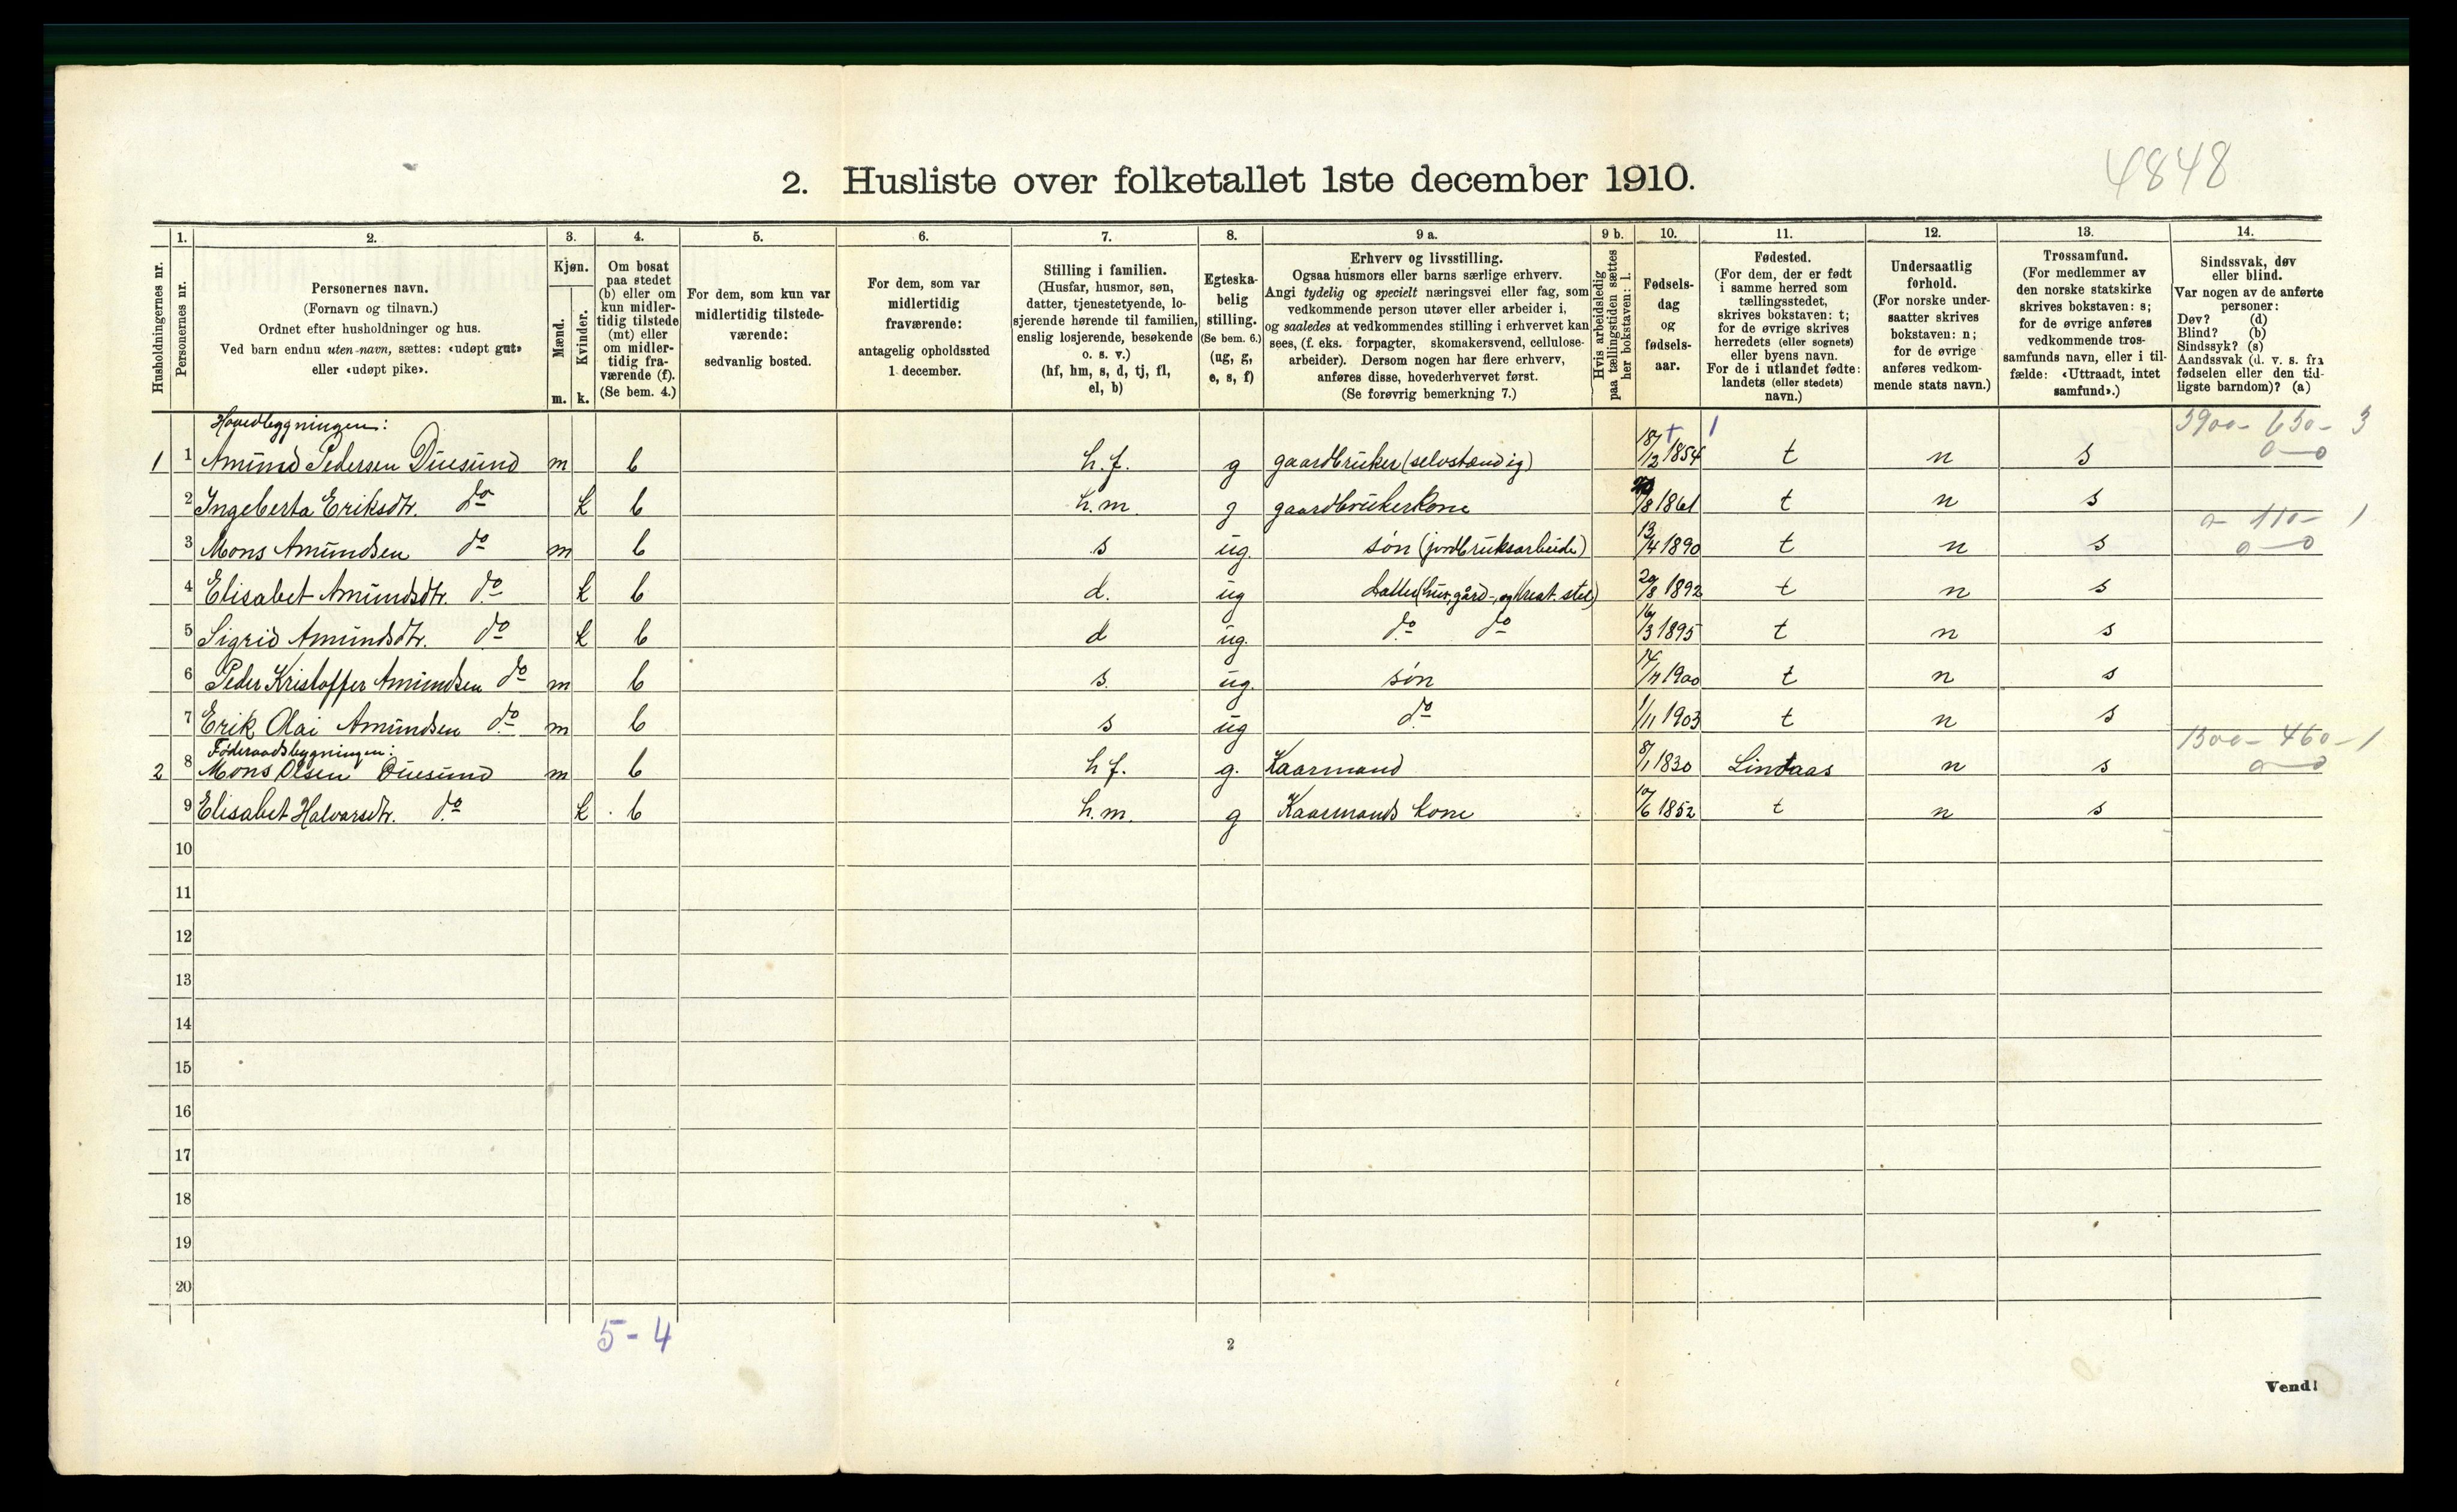 4848
2. Husliste over folketallet 1ste december 1910.
Husholdningernes nr.
1.
Personernes nr.
2.
Personernes navn.
(Fornavn og tilnavn.)
Ordnet efter husholdninger og hus.
Ved barn endnu uten navn, sættes: «udøpt gut»
eller «udøpt pike».
3.
Kjøn.
Mænd.
Kvinder.
m. k.
4.
Om bosat
paa stedet
(b) eller om
kun midler-
tidig tilstede
(mt) eller
om midler-
tidig fra-
værende (f).
(Se bem. 4.)
5.
For dem, som kun var
midlertidig tilstede-
værende:
sedvanlig bosted.
6.
For dem, som var
midlertidig
fraværende:
antagelig opholdssted
1 december.
7.
Stilling i familien.
(Husfar, husmor, søn,
datter, tjenestetyende, lo-
sjerende hørende til familien,
enslig losjerende, besøkende
o. s. v.)
(hf, hm, s, d, tj, fl,
el, b)
8.
Egteska-
belig
stilling.
(Se bem. 6.)
(ug, g,
e, s, f)
9 a.
Erhverv og livsstilling.
Ogsaa husmors eller barns særlige erhverv.
Angi tydelig og specielt næringsvei eller fag, som
vedkommende person utøver eller arbeider i,
og saaledes at vedkommendes stilling i erhvervet kan
sees, (f. eks. forpagter, skomakersvend, cellulose-
arbeider). Dersom nogen har flere erhverv,
anføres disse, hovederhvervet først.
(Se forøvrig bemerkning 7.)
9 b.
Hvis arbeidsledig
paa tællingstiden sættes
her bokstaven: l.
10.
Fødsels-
dag
og
fødsels-
aar.
11.
Fødested.
(For dem, der er født
i samme herred som
tællingsstedet,
skrives bokstaven: t;
for de øvrige skrives
herredets (eller sognets)
eller byens navn.
For de i utlandet fødte:
landets (eller stedets)
navn.)
12.
Undersaatlig
forhold.
(For norske under-
saatter skrives
bokstaven: n;
for de øvrige
anføres vedkom-
mende stats navn.)
13.
Trossamfund.
(For medlemmer av
den norske statskirke
skrives bokstaven: s;
for de øvrige anføres
vedkommende tros-
samfunds navn, eller i til-
fælde: «Uttraadt, intet
samfund».)
14.
Sindssvak, døv
eller blind.
Var nogen av de anførte
personer:
Døv? (d)
Blind? (b)
Sindssyk? (s)
Aandssvak (d. v. s. fra
fødselen eller den tid-
ligste barndom)? (a)
Hovedbygningen:
3900- 650- 3
1 1 Amund Pedersen Duesund m b h.f. g gaardbruker (selvstændig) 18/12 1854 t n s 0-0
2 Ingeberta Eriksdtr. do k b h.m. g gaardbrukerkone /8 1861 t n s
0- 110- 1
3 Mons Amundsen do m b s ug. søn (jordbruksarbeide) 13/4 1890 t n s 0-0
4 Elisabet Amundsdtr. do k b d. ug datter (hus, gård-, og kreat. stel) 20/8 1892 t n s
5 Sigrid Amundsdtr. do k b d ug. do do 16/3 1895 t n s
6 Peder Kristoffer Amundsen do m b s. ug. søn 14/ 1900 t n s
7 Erik Olai Amundsen do m b s ug do 1/11 1903 t n s
Føderaadsbygningen:
1300- 460- 1
2 8 Mons Olsen Duesund m b h f. g. Kaarmand 8/1 1830 Lindaas n s 0-0
9 Elisabet Halvarsdtr. do k b h.m. g Kaarmands kone 10/6 1852 t n s
10
11
12
13
14
15
16
17
18
19
20
5-4
2
Vend!